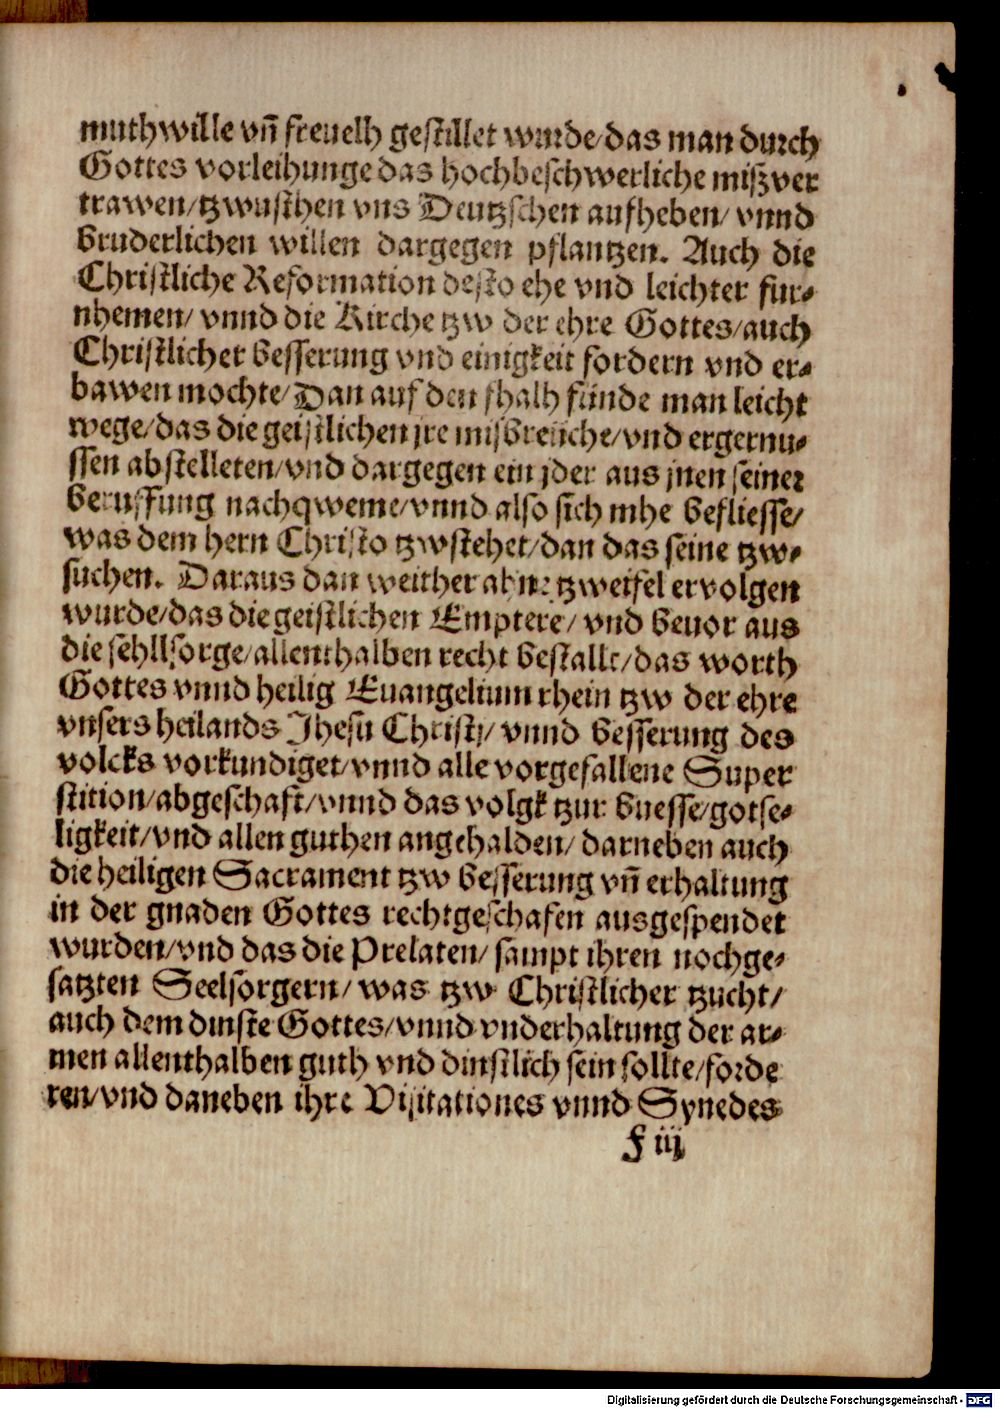 muthwille vñ freuelh gestillet wurde/das man durch
Gottes vorleihunge das hochbeschwerliche mißver
trawen/tzwusthen vns Deutzschen aufheben/ vnnd
bruderlichen willen dargegen pflantzen. Auch die
Christliche Reformation desto ehe vnd leichter fur-
nhemen/ vnnd die Kirche tzw der ehre Gottes/auch
Christlicher besserung vnd einigkeit fordern vnd er-
bawen mochte/Dan auf den fhalh fünde man leicht
wege/das die geistlichen jre misbreuche/vnd ergernu-
ssen abstelleten/vnd dargegen ein jder aus jnen seiner
beruffung nachqweme/vnnd also sich mhe befliesse/
was dem hern Christo tzwstehet/dan das seine tzw-
suchen. Daraus dan weither ahne tzweifel ervolgen
wurde/das die geistlichen Emptere/ vnd beuor aus
die sehllsorge/allenthalben recht bestallt/das worth
Gottes vnnd heilig Euangelium rhein tzw der ehre
vnsers heilands Jhesu Christj/ vnnd besserung des
volcks vorkundiget/vnnd alle vorgefallene Super
stition/abgeschaft/vnnd das volgk tzur buesse/gotse-
ligkeit/vnd allen guthen angehalden/ darneben auch
die heiligen Sacrament tzw besserung vñ erhaltung
in der gnaden Gottes rechtgeschafen ausgespendet
wurden/vnd das die Prelaten/ sampt ihren nochge-
satzten Seelsorgern/ was tzw Christlicher tzucht/
auch dem dinste Gottes/vnnd vnderhaltung der ar-
men allenthalben guth vnd dinstlich sein sollte/forde
ren/vnd daneben ihre Visitationes vnnd Synedes
F iij
Digitalisierung gefördert durch die Deutsche Forschungsgemeinschaft - DFG